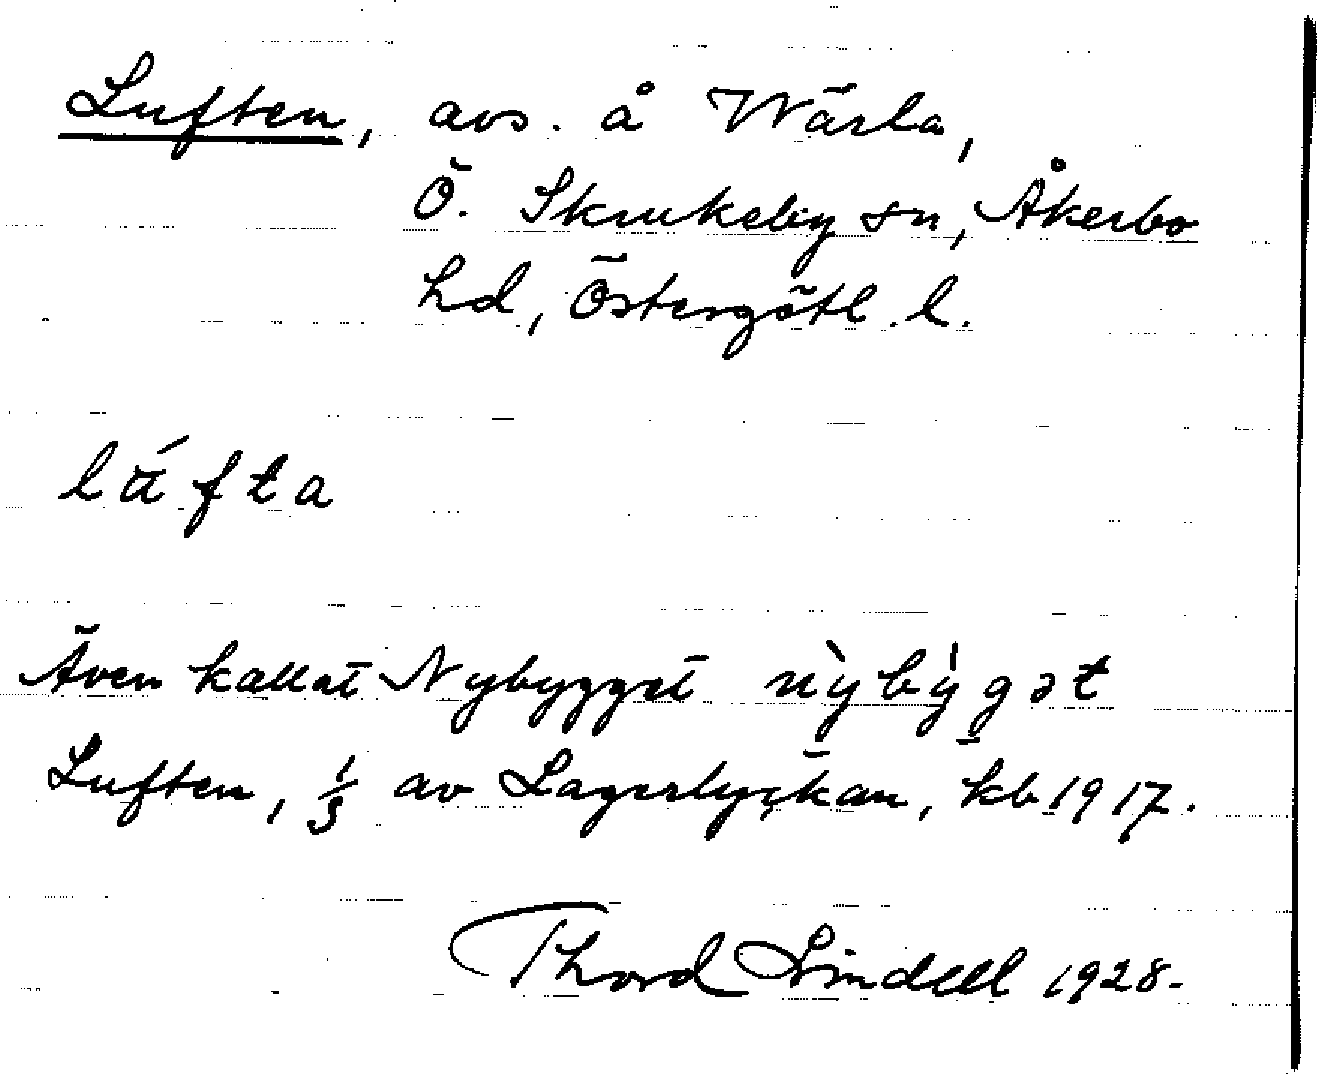 Luften, avs. å Wärla,
Ö. Skrukeby sn, Åkerbo
hd, Östergötl. l.
lú̵fta
Även kallat Nybygget nỳbỳgət
Luften, 1/3 av Lagerlyckan, kb 1917.
Thord Lindell 1928.